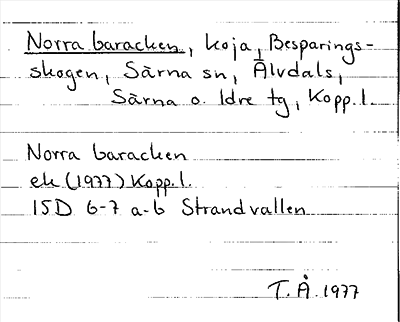 Norra baracken, koja, Besparings-
skogen, Särna sn, Älvdals,
Särna o. Idre tg, Kopp. l.
Norra baracken
ek (1977) Kopp. l.
15D 6-7 a-b Strandvallen
T. Å. 1977